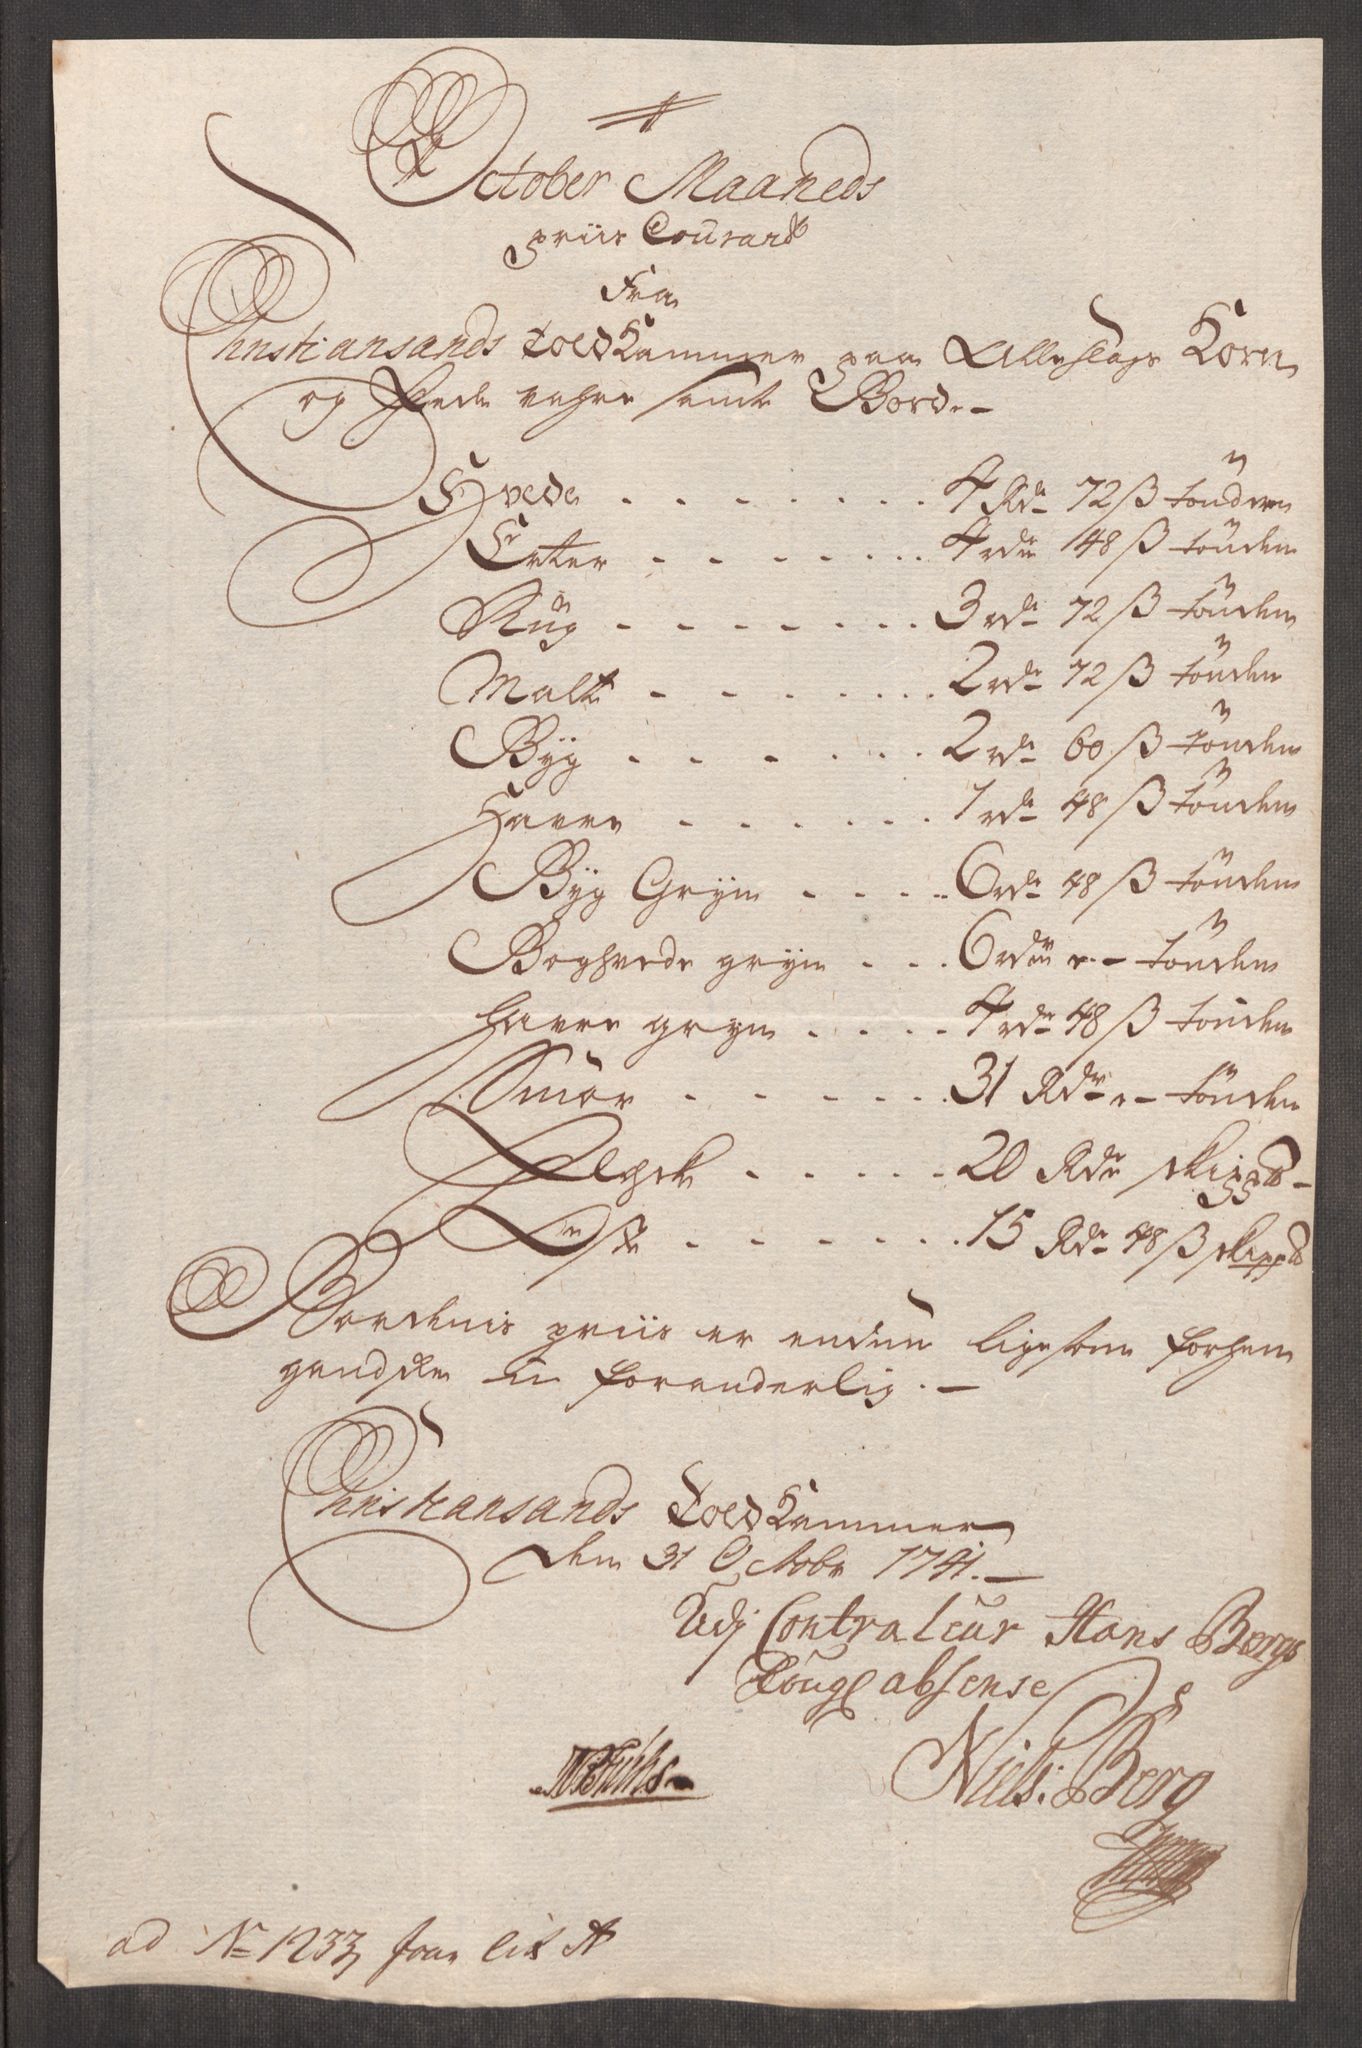 October Maaneds
priis Courant
Fra
Christiansands Told Kammer paa Alle slags Korn
og Fede vahre samt Bord.-
Hvede . . . . . . . 4 Rdr 72 ß tönden
Erter . . . . . . . 4 rdr 48 ß tönden
Rug . . . . . . . 3 rdr 72 ß tönden
Malt . . . . . . . 2 rdr 72 ß tönden
Byg . . . . . . . 2 rdr 60 ß tönden
Havre . . . . . . . 1 rdr 48 ß tönden
Byg Gryn . . . . . 6 rdr 48 ß tönden
Boghvede gryn . . . 6 rdr „- tönden
Havre gryn . . . . 4 rdr 48 ß tönden
Smör . . . . . . 31 Rdr „- tönden
Flesk . . . . . 20 Rdr skippd-
Talg . . . . . . . 15 Rdr 48 ß skippd
Bordenis priis er endnu ligesom forhen
gandske u foranderlig.-
Christiansands Told Kammer
den 31 Octobr 1741.-
Udj Contraleur Hans Bergs
absense
Niels: Berg
ad No 1233 Lit A